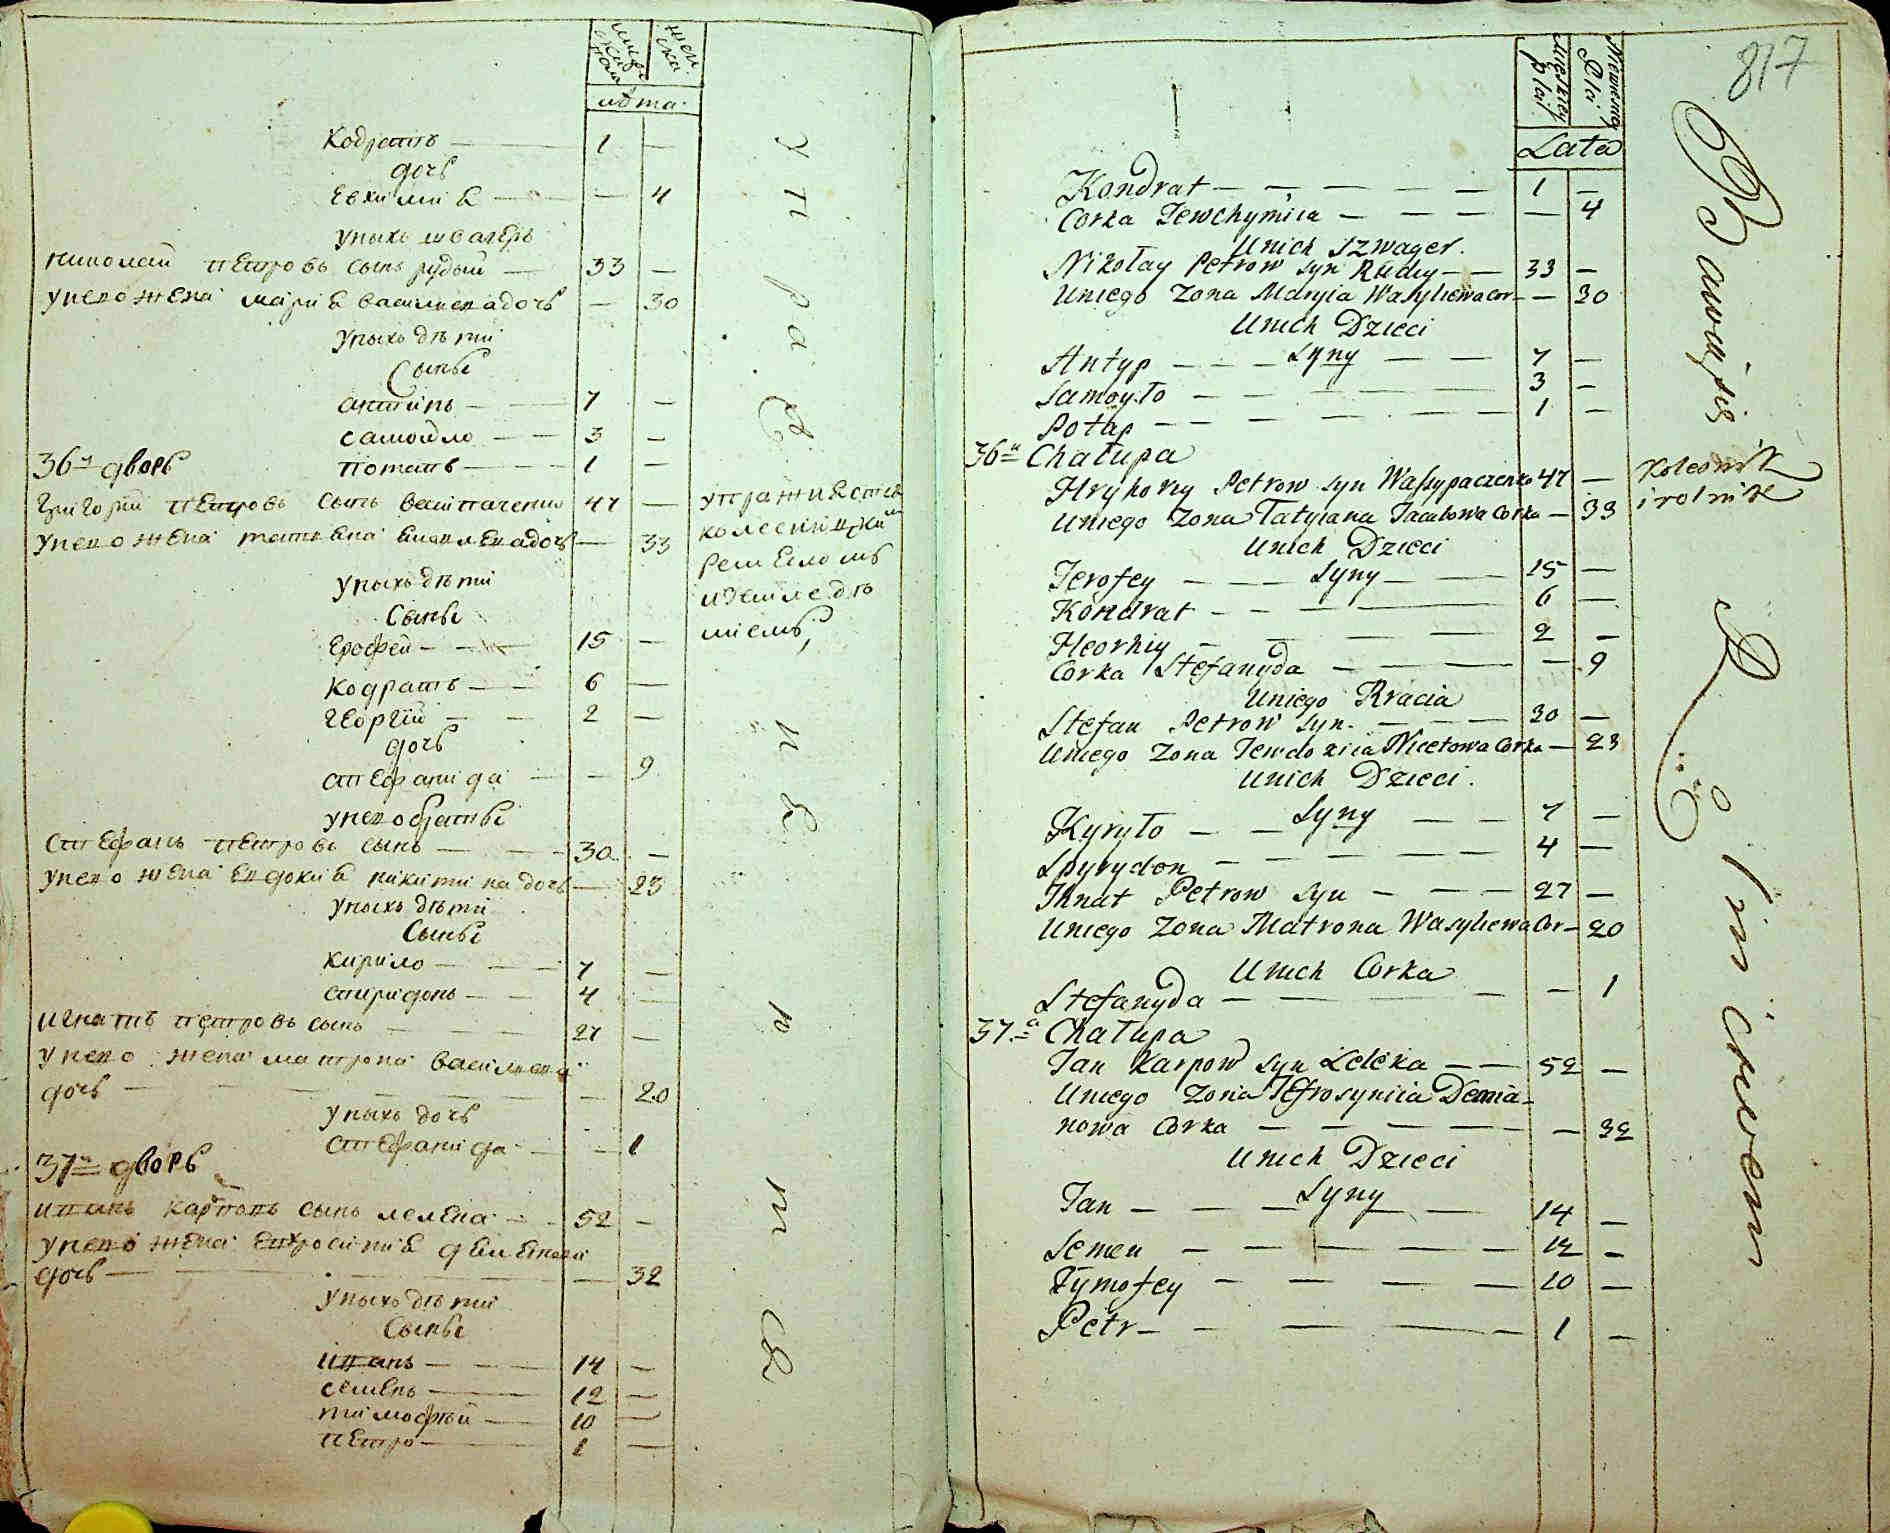 мужеска пола
женска
лѣта
Кодратъ — 1 —
дочь
Евхимия — — 4
унихъ швагеръ
николай петровъ сынъ рудый — 33 —
унего жена мария василиева дочь — 30
унихъ дѣти
Сыны
антипъ — 7 —
самойло — 3 —
36й дворъ потапъ — 1 —
Григорий петровъ сынъ васипаченко 47 —
унего жена татияна яковлева дочь — 33
унихъ дѣти
Сыны
Ерофей — 15 —
кодратъ — 6 —
георгий — 2 —
дочь
стефанида — — 9
унего братья
стефанъ петровъ сынъ — 30 —
унего жена евдокия никитина дочь — 23
унихъ дѣти
Сыны
кирило — 7 —
спиридонъ — 4 —
игнатъ петровъ сынъ — 27 —
унего жена матрона василиева
дочь — — 20
унихъ дочь
стефанида — — 1
37й дворъ
иванъ карповъ сынъ лелека — 52 —
унего жена ефросиния демянова
дочь — — 32
унихъ дѣти
Сыны
иванъ — 14 —
семенъ — 12 —
тимофѣй — 10 —
петро — 1 —
упражняется
упражняется
колесницкимъ
ремесломъ
817
Męskiey Płci
Lata
Kondrat — 1 —
Corka Jewchymiia — — 4
Unich Szwager
Nikołay Petrow syn Rudiy — 33 —
Uniego Zona Maryia Wasyliewa Cor — 30
Unich Dzieci
Syny
Antyp — 7 —
Samoyło — 3 —
Potap — 1 —
36a Chałupa
Hryhory Petrow syn Wasypaczenko 47 —
Uniego Zona Tatyiana Jacubowa Corka — 33
Unich Dzieci
Syny
Jerofey — 15 —
Kondrat — 6 —
Heorhiy — 2 —
Corka Stefanyda — — 9
Uniego Bracia
Stefan Petrow syn — 30 —
Uniego Zona Jewdokiia Nicetowa Corka — 23
Unich Dzieci
Syny
Kyryło — 7 —
Spyrydon — 4 —
Ihnat Petrow syn — 27 —
Uniego Zona Matrona Wasyliewa Cor — 20
Unich Corka
Stefanyda — — 1
37a Chałupa
Jan Karpow syn Leleka — 52 —
Uniego Zona Jefrosyniia Demia-
nowa Corka — — 32
Unich Dzieci
Syny
Jan — 14 —
Semen — 12 —
Tymofey — 10 —
Petr — 1 —
Bawiąsię Rolnictwem
Kolesnik
i rolnik